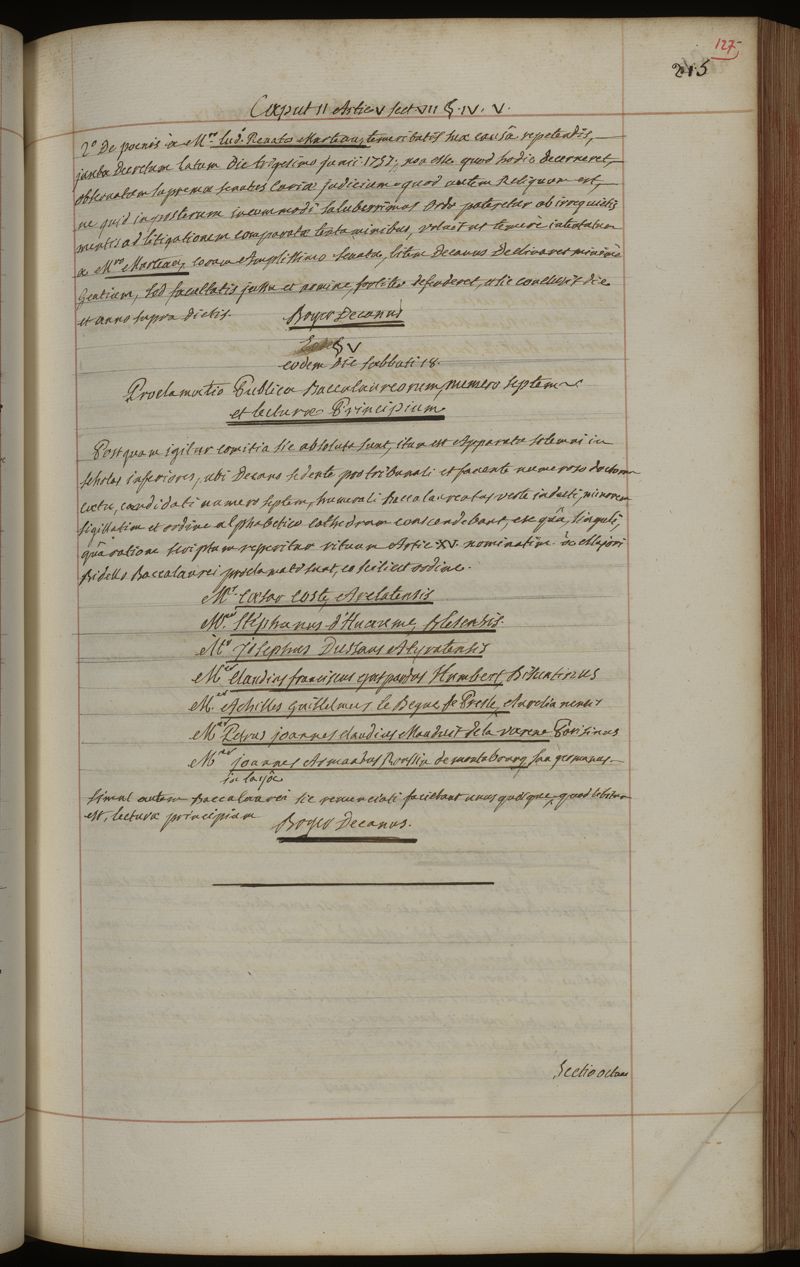 127
215
Caput II Artic V Sect VIII §. IV. V.
2° De poenis à M.ro Lud.o Renato Marteau, temeritatis suae causâ repetendis,
juxta Decretum latum Die trigesimo junii 1757, non esse quod hodie decerneret,
obtenatam supremae senatus Curiae judicium. quod autem Reliquum est,
ne quid in posterum incommodi saluberrimus Ordo pateretur ab irrequietis
mentis ad litigationem comparatae tentaminibus, voluit ut temerè intentatam
a M.ro Marteau, coram Amplissimo Senatu, litem Decanus Declinaret minimè
Gentium, sed facultatis jussu et nomine, fortiter defenderet, et sic conclusit die
et anno supra dictis. Boyer Decanus
§ V
eodem Die Sabbati 18.
Proclamatio Publica Baccalaureorum, numero septem
et lecturae Principium
Postquam igitur comitia sic absoluta sunt, itum est Apparatu solemni in
scholas inferiores, ubi Decano sedente pro tribunali et favente numeroso doctorum
coetu, candidati numero septem, humerali Baccalaureatus veste induti, minorem
sigillatim et ordine alphabetico cathedram conscendebant, ex quâ, singuli,
quâ ratione scriptum reperitur rituum Artic XV. nominatim à Majori
Bidello Baccalaurei proclamati sunt, eo scilicet ordine.
M.r Caesar Coste, Arelatensis
M.er Stephanus d'Huaume, Blesensis.
M.r Josephus Dussans Atyratensis
M.er Claudius franciscus gaspardus Humbert Bisuntinus
M.er Achilles Guillelmus le Begue de Presle, Aurelianensis
M.er Petrus joannes claudius Mauduit de la varene Parisinus
M.er joannes Armandus Roussin de montabourg san germanus
in layâ
Simul autem Baccalaurei sic renunciati faciebant unusquisque, quod solitum
est, lecturae principium
Boyer Decanus.
Sectio octava